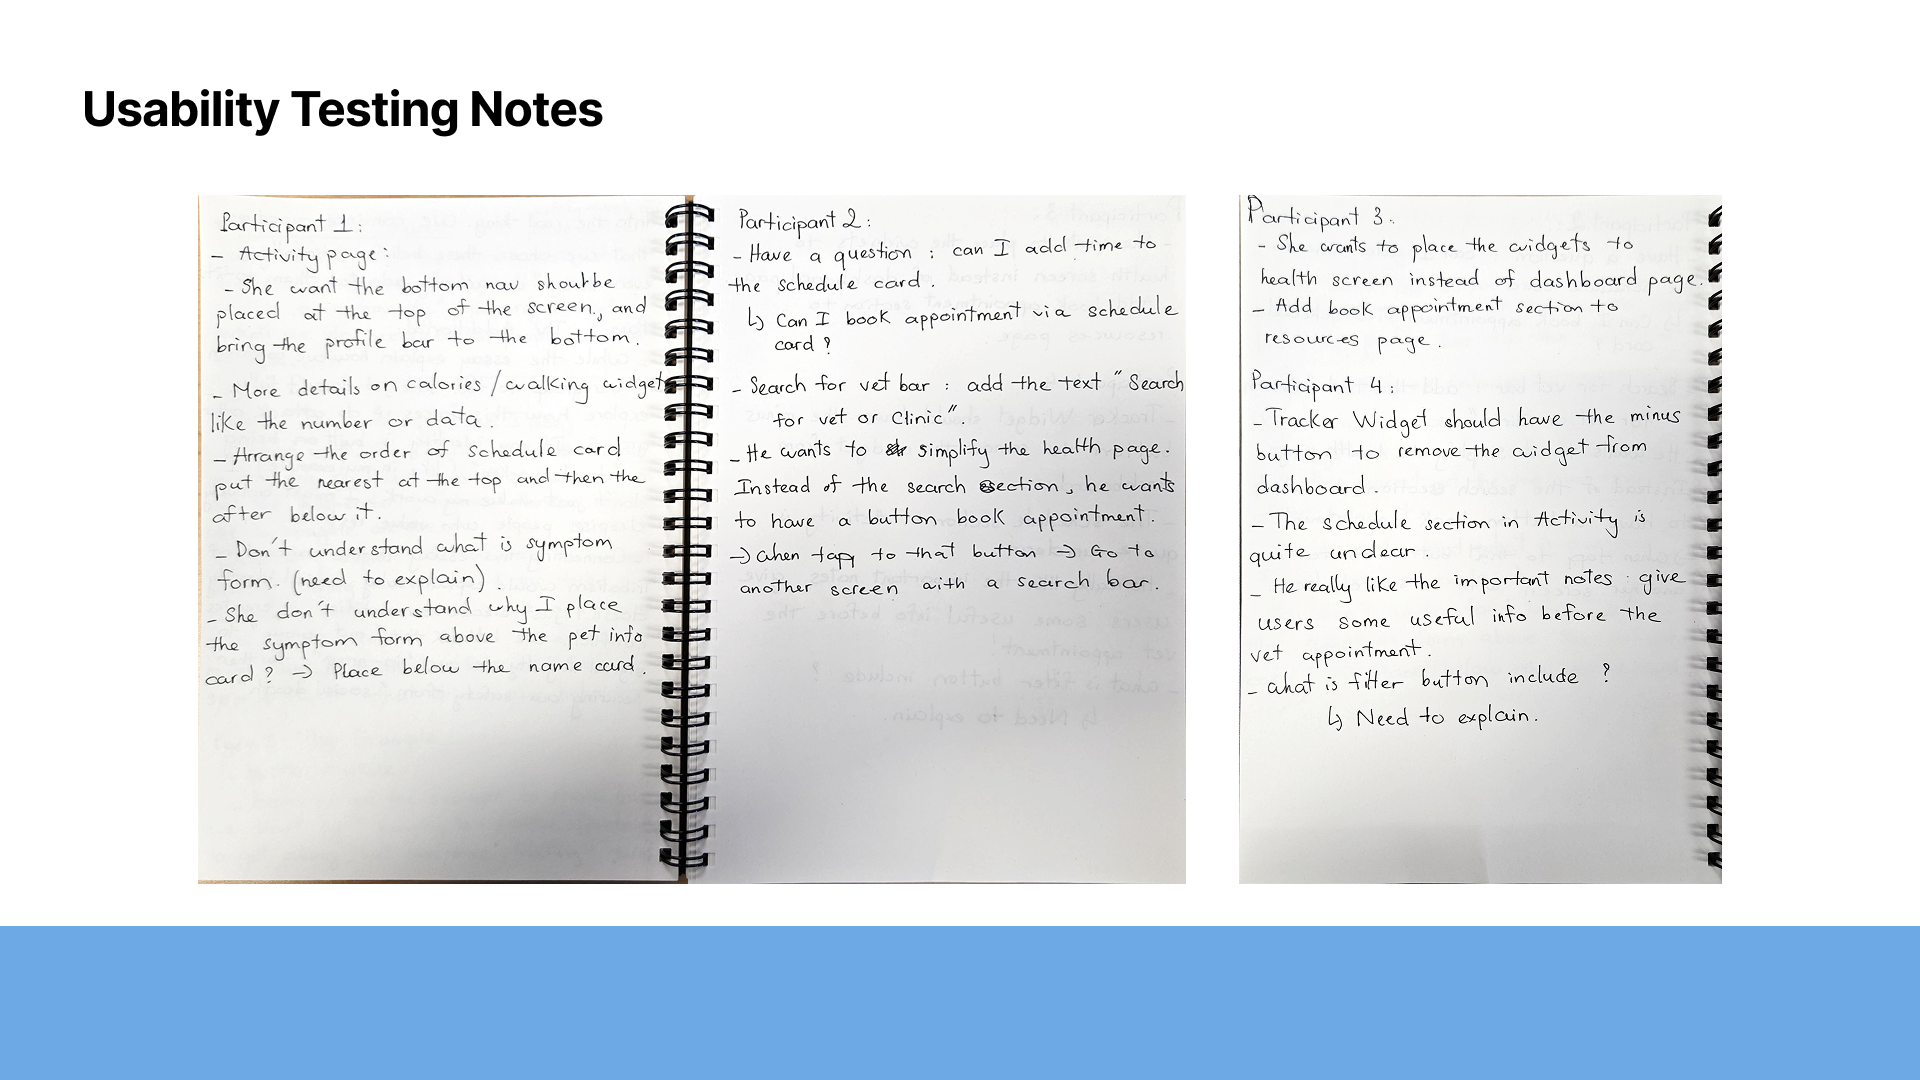 Usability Testing Notes
Participant 1:
- Activity page:
- She want the bottom nav shoutbe
placed at the top of the screen, and
bring the profile bar to the bottom.
- More details on calories / walking widget
like the number or data.
- Arrange the order of schedule card
put the nearest at the top and then the
after below it.
- Don't understand what is symptom
form. (need to explain).
- She don't understand why I place
the symptom form above the pet info
card? → Place below the name card.
Participant 2:
- Have a question : can I add time to
the schedule card.
↳ Can I book appointment via schedule
card?
- Search for vet bar : add the text "Search
for vet or Clinic".
- He wants to simplify the health page.
Instead of the search section, he wants
to have a button book appointment.
→ when tap to that button → Go to
another screen with a search bar.
Participant 3:
- She wants to place the widgets to
health screen instead of dashboard page.
- Add book appointment section to
resources page.
Participant 4:
- Tracker Widget should have the minus
button to remove the widget from
dashboard.
- The schedule section in Activity is
quite unclear.
- He really like the important notes : give
users some useful info before the
vet appointment.
- what is filter button include ?
↳ Need to explain.